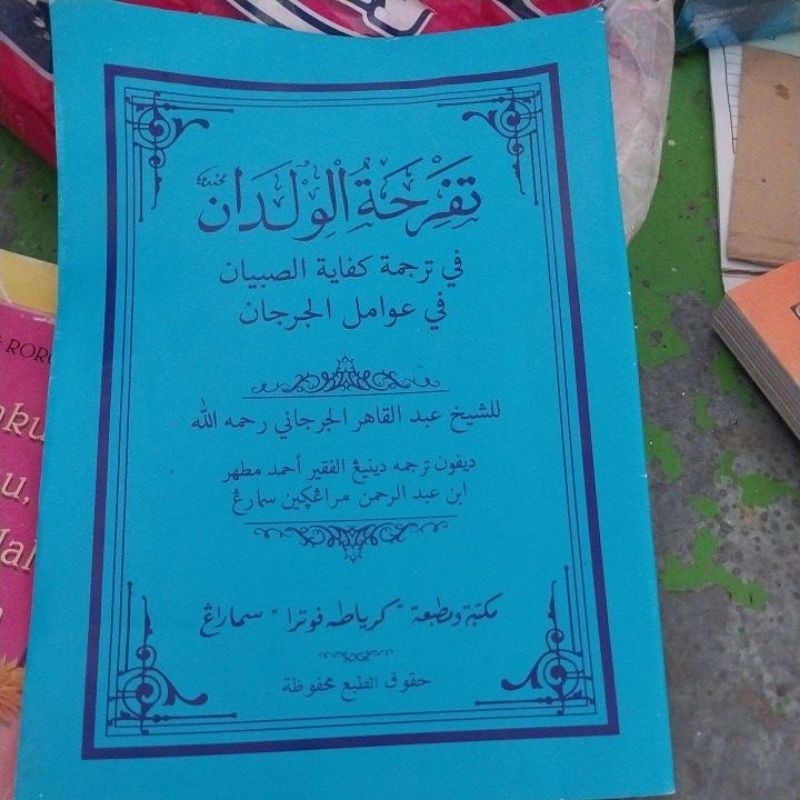 تَفْرِحَةُ الْوِلْدَان
في ترجمة كفاية الصبيان
في عوامل الجرجان
للشيخ عبد القاهر الجرجاني رحمه الله
ديفون ترجمه دينيڠ الفقير أحمد مطهر
ابن عبد الرحمن مراڠڮين سمارڠ
مكتبة ومطبعة "كرياطه فوترا" سماراڠ
حقوق الطبع محفوظة